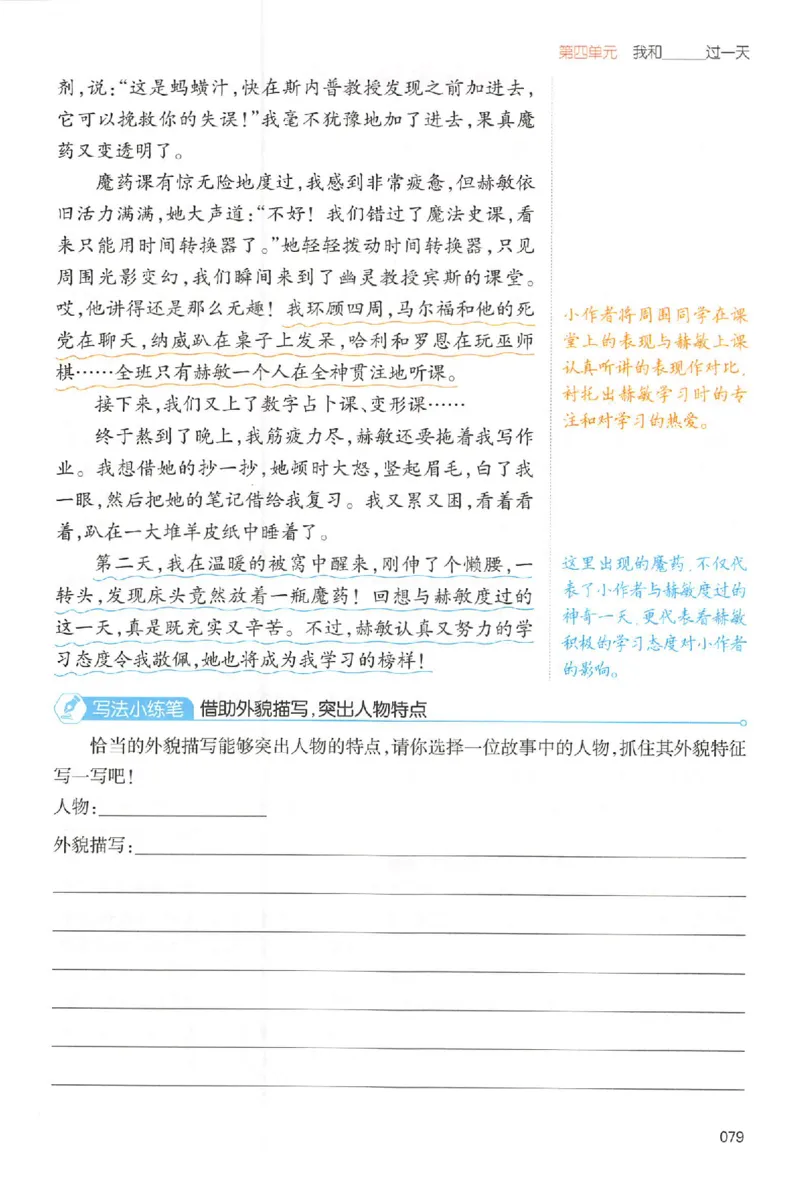 第四单元 我和_____过一天
剂,说:“这是蚂蟥汁,快在斯内普教授发现之前加进去,
它可以挽救你的失误!”我毫不犹豫地加了进去,果真魔
药又变透明了。
魔药课有惊无险地度过,我感到非常疲惫,但赫敏依
旧活力满满,她大声道:“不好! 我们错过了魔法史课,看
来只能用时间转换器了。”她轻轻拨动时间转换器,只见
周围光影变幻,我们瞬间来到了幽灵教授宾斯的课堂。
哎,他讲得还是那么无趣! 我环顾四周,马尔福和他的死
党在聊天,纳威趴在桌子上发呆,哈利和罗恩在玩巫师
棋……全班只有赫敏一个人在全神贯注地听课。
接下来,我们又上了数字占卜课、变形课……
终于熬到了晚上,我筋疲力尽,赫敏还要拖着我写作
业。我想借她的抄一抄,她顿时大怒,竖起眉毛,白了我
一眼,然后把她的笔记借给我复习。我又累又困,看着看
着,趴在一大堆羊皮纸中睡着了。
第二天,我在温暖的被窝中醒来,刚伸了个懒腰,一
转头,发现床头竟然放着一瓶魔药! 回想与赫敏度过的
这一天,真是既充实又辛苦。不过,赫敏认真又努力的学
习态度令我敬佩,她也将成为我学习的榜样!
小作者将周围同学在课
堂上的表现与赫敏上课
认真听讲的表现作对比,
衬托出赫敏学习时的专
注和对学习的热爱。
这里出现的魔药,不仅代
表了小作者与赫敏度过的
神奇一天,更代表着赫敏
积极的学习态度对小作者
的影响。
写法小练笔 借助外貌描写,突出人物特点
恰当的外貌描写能够突出人物的特点,请你选择一位故事中的人物,抓住其外貌特征
写一写吧!
人物:
外貌描写:
079